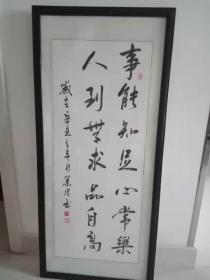 事能知足心常樂
人到無求品自高
歲在辛